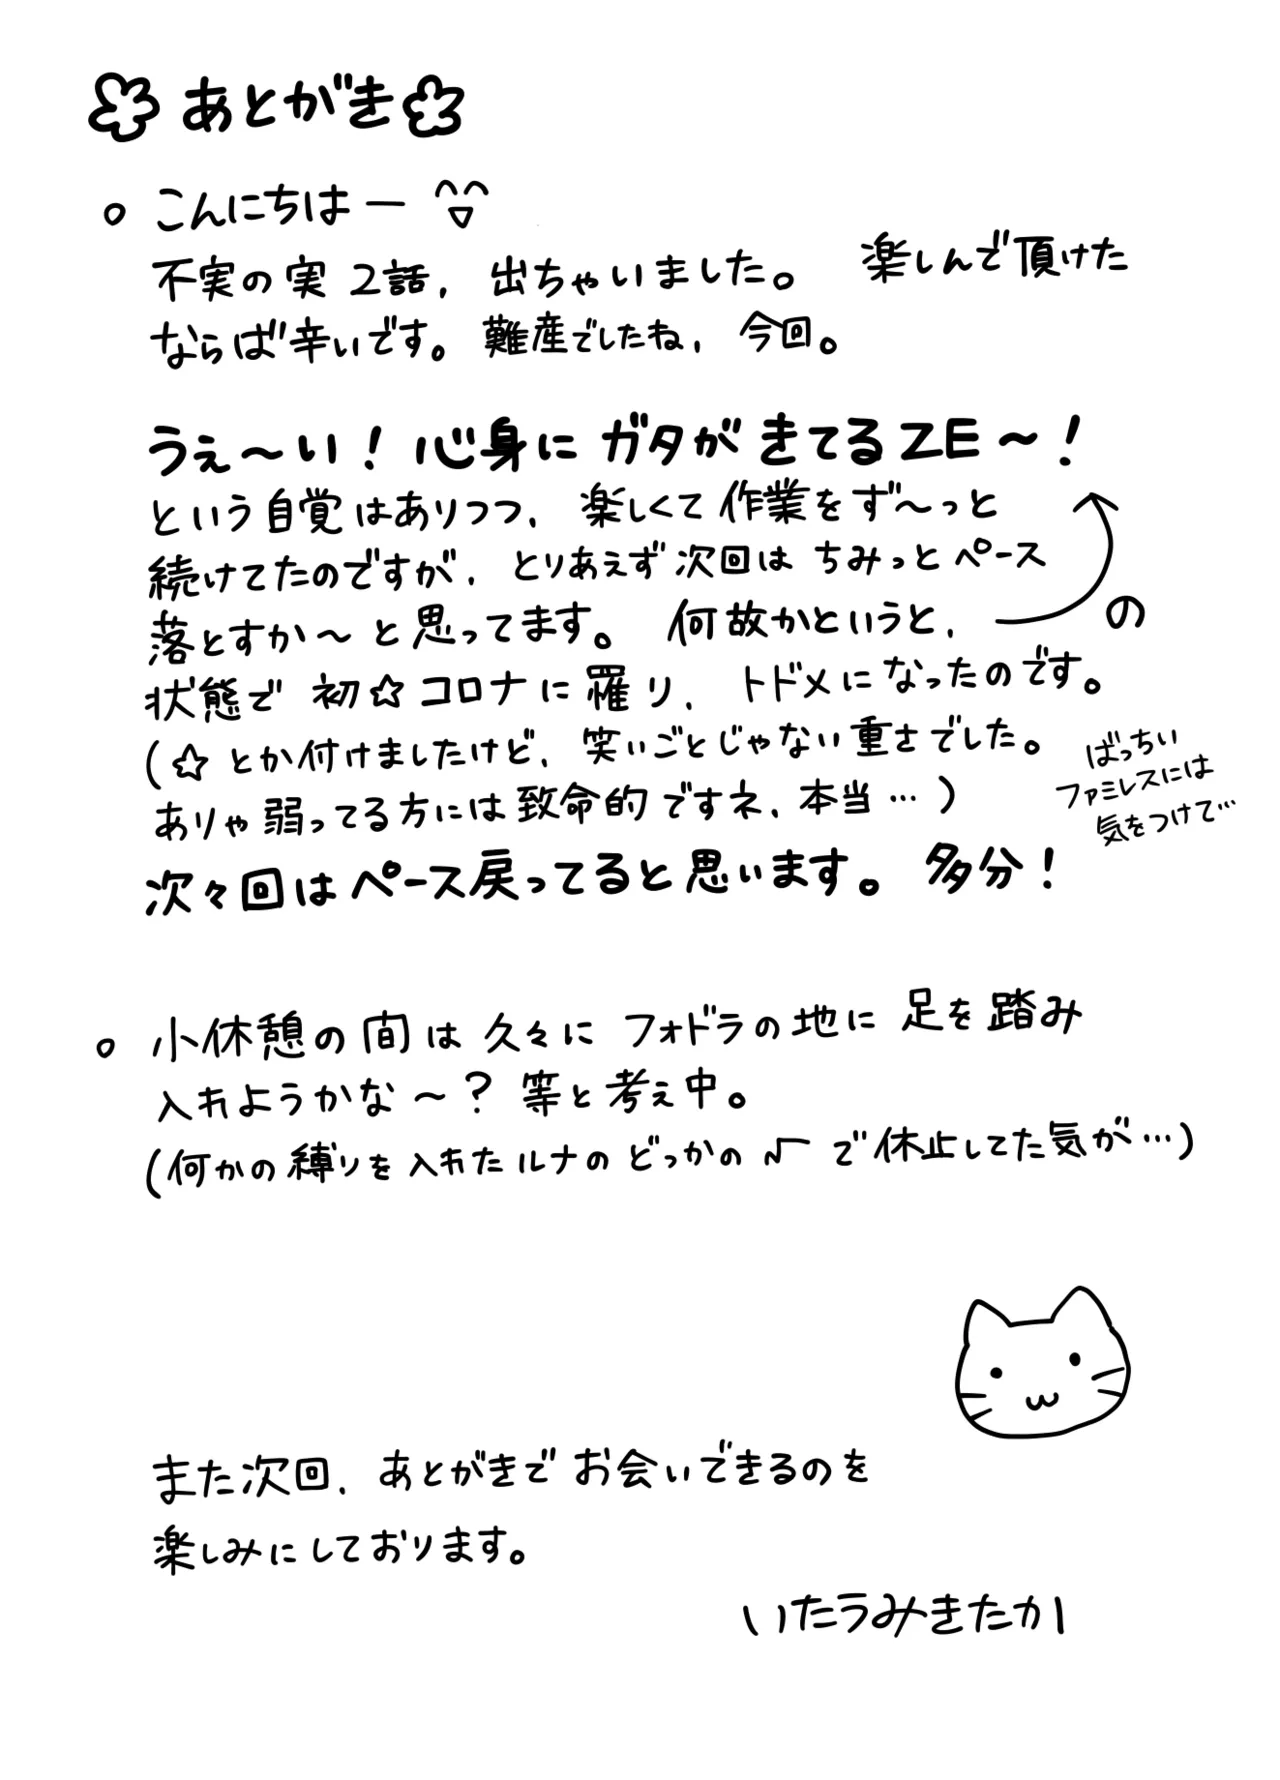 あとがき
こんにちはー
不実の実 2話、出ちゃいました。 楽しんで頂けた
ならば幸いです。難産でしたね、今回。
うぇ～い！心身にガタがきてるZE～！
という自覚はありつつ、楽しくて作業をず～っと
続けてたのですが、とりあえず次回はちみっとペース
落とすか～と思ってます。 何故かというと、 の
状態で初☆コロナに罹り、トドメになったのです。
(☆とか付けましたけど、笑いごとじゃない重さでした。
ありゃ弱ってる方には致命的ですネ、本当…)
ばっちい
ファミレスには
気をつけて…
次々回はペース戻ってると思います。多分！
小休憩の間は久々にフォドラの地に足を踏み
入れようかな～？等と考え中。
(何かの縛りを入れたルナのどっかの√で休止してた気が…)
また次回、あとがきでお会いできるのを
楽しみにしております。
いたうみきたか